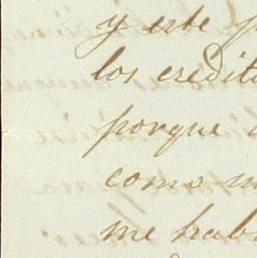 y este
los credit
porque
como m
me hab